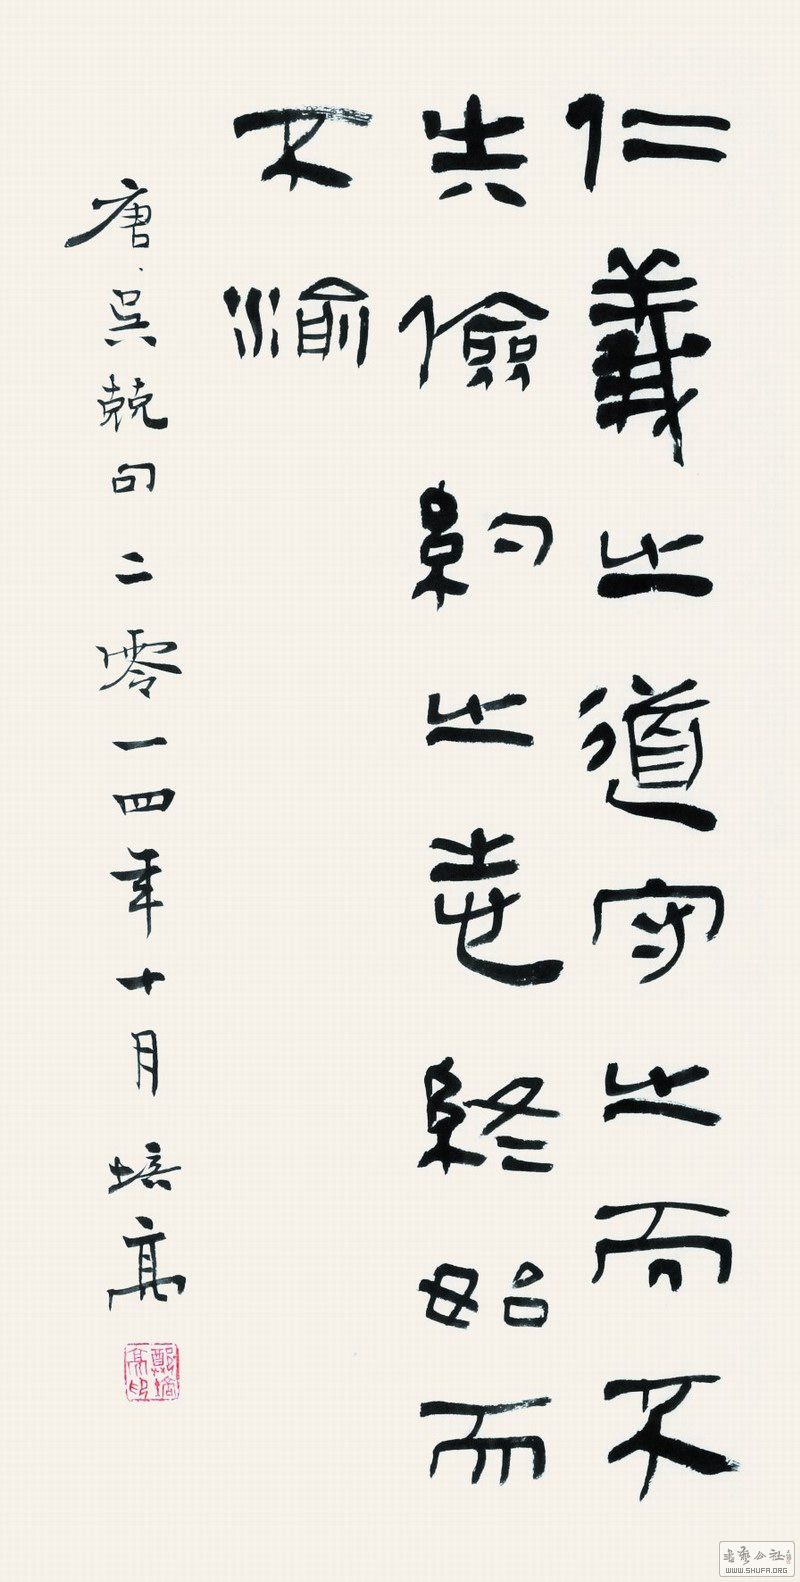 仁義之道守之而不
失儉約之志終始而
不渝
唐吳兢句二零一四年十月培高
鄭培高印
書藝公社
WWW.SHUFA.ORG